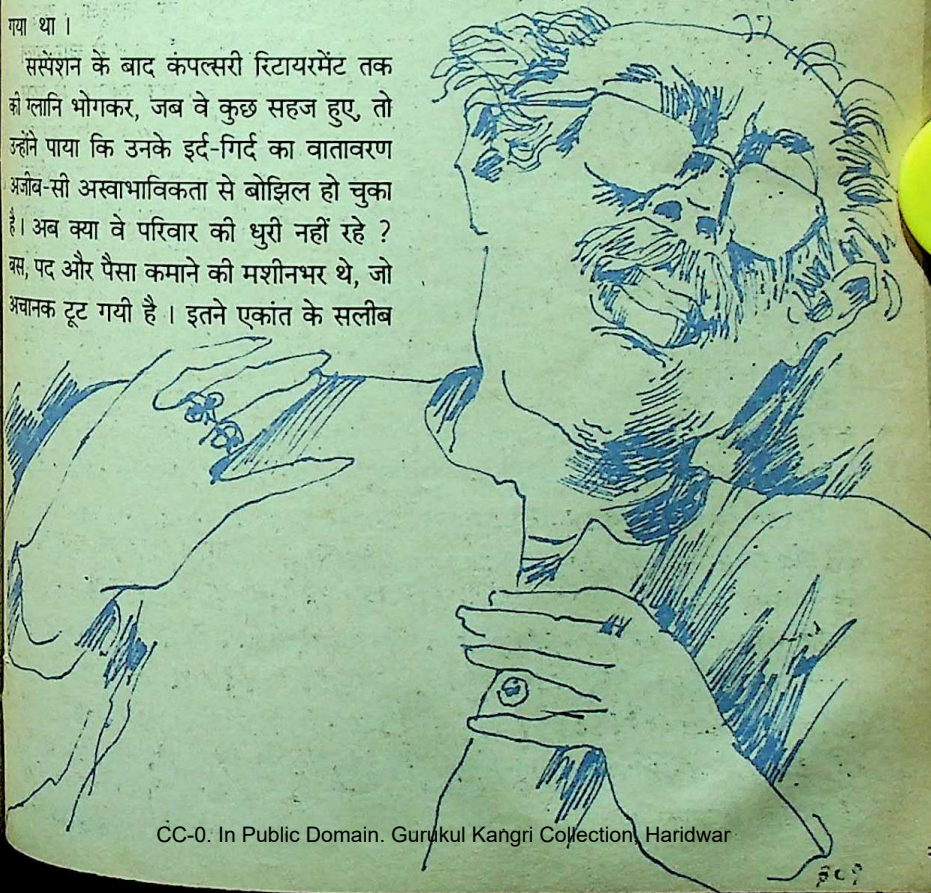 गया था ।
सस्पेंशन के बाद कंपल्सरी रिटायरमेंट तक
की ग्लानि भोगकर, जब वे कुछ सहज हुए, तो
उन्होंने पाया कि उनके इर्द-गिर्द का वातावरण
अजीब-सी अस्वाभाविकता से बोझिल हो चुका
है। अब क्या वे परिवार की धुरी नहीं रहे ?
बस, पद और पैसा कमाने की मशीनभर थे, जो
अचानक टूट गयी है । इतने एकांत के सलीब
CC-0. In Public Domain. Gurukul Kangri Collection, Haridwar